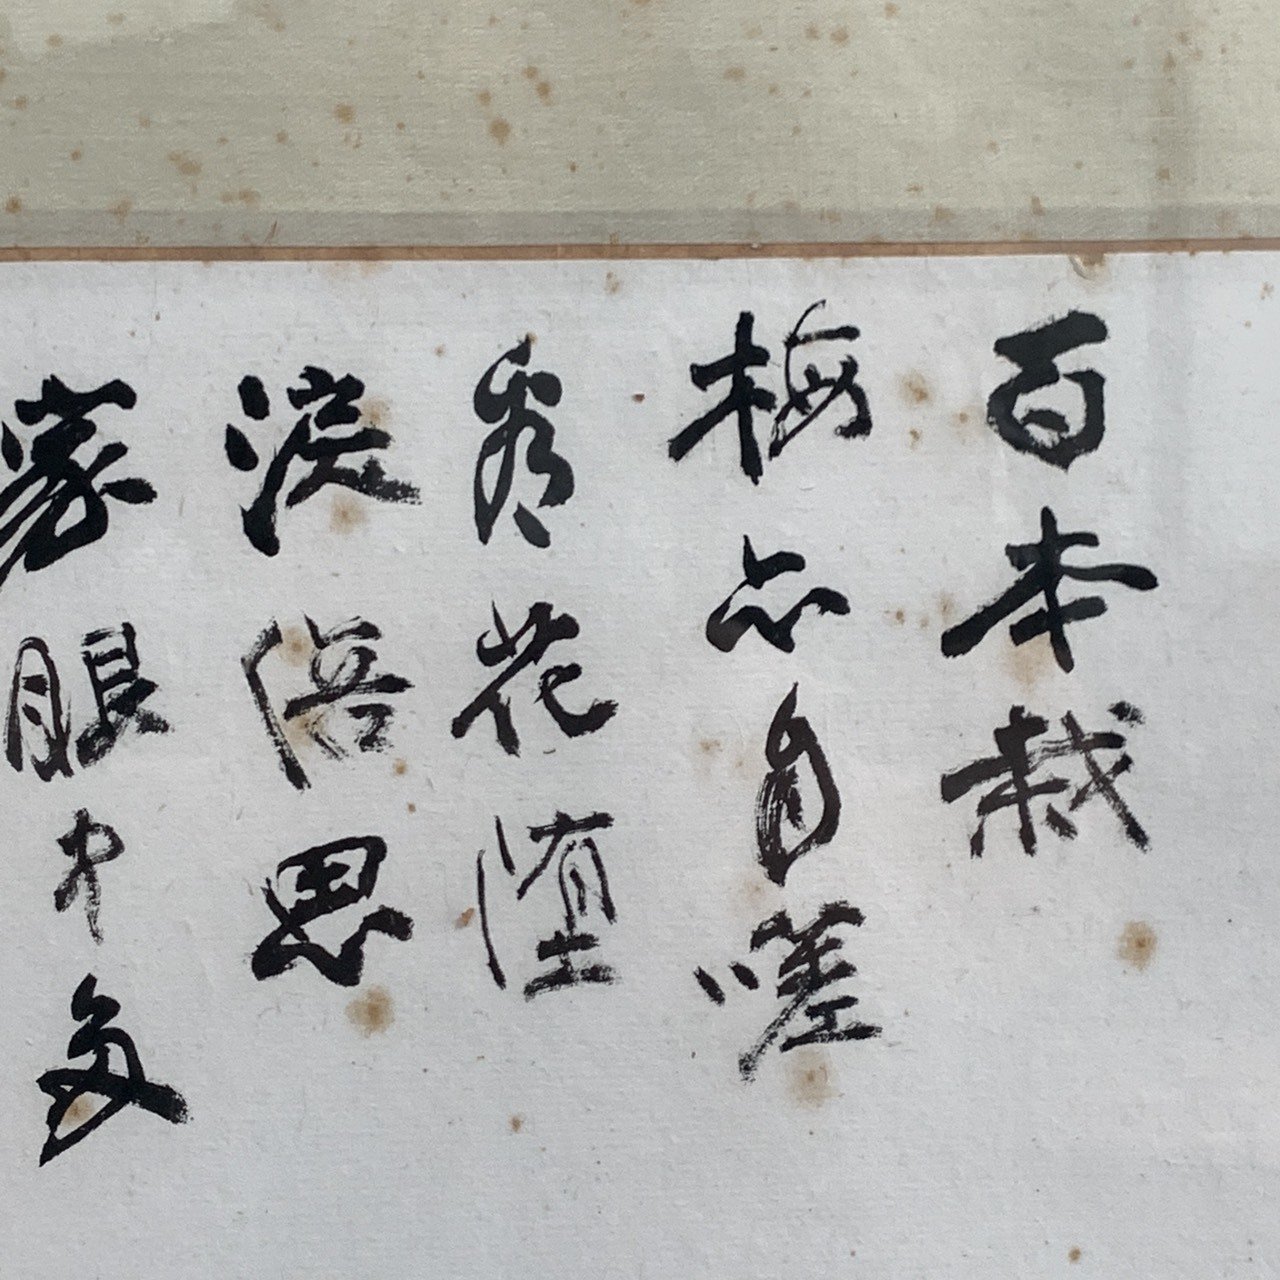 百本栽
梅亦自嗟
看花堕
淚倍思
家眼中多